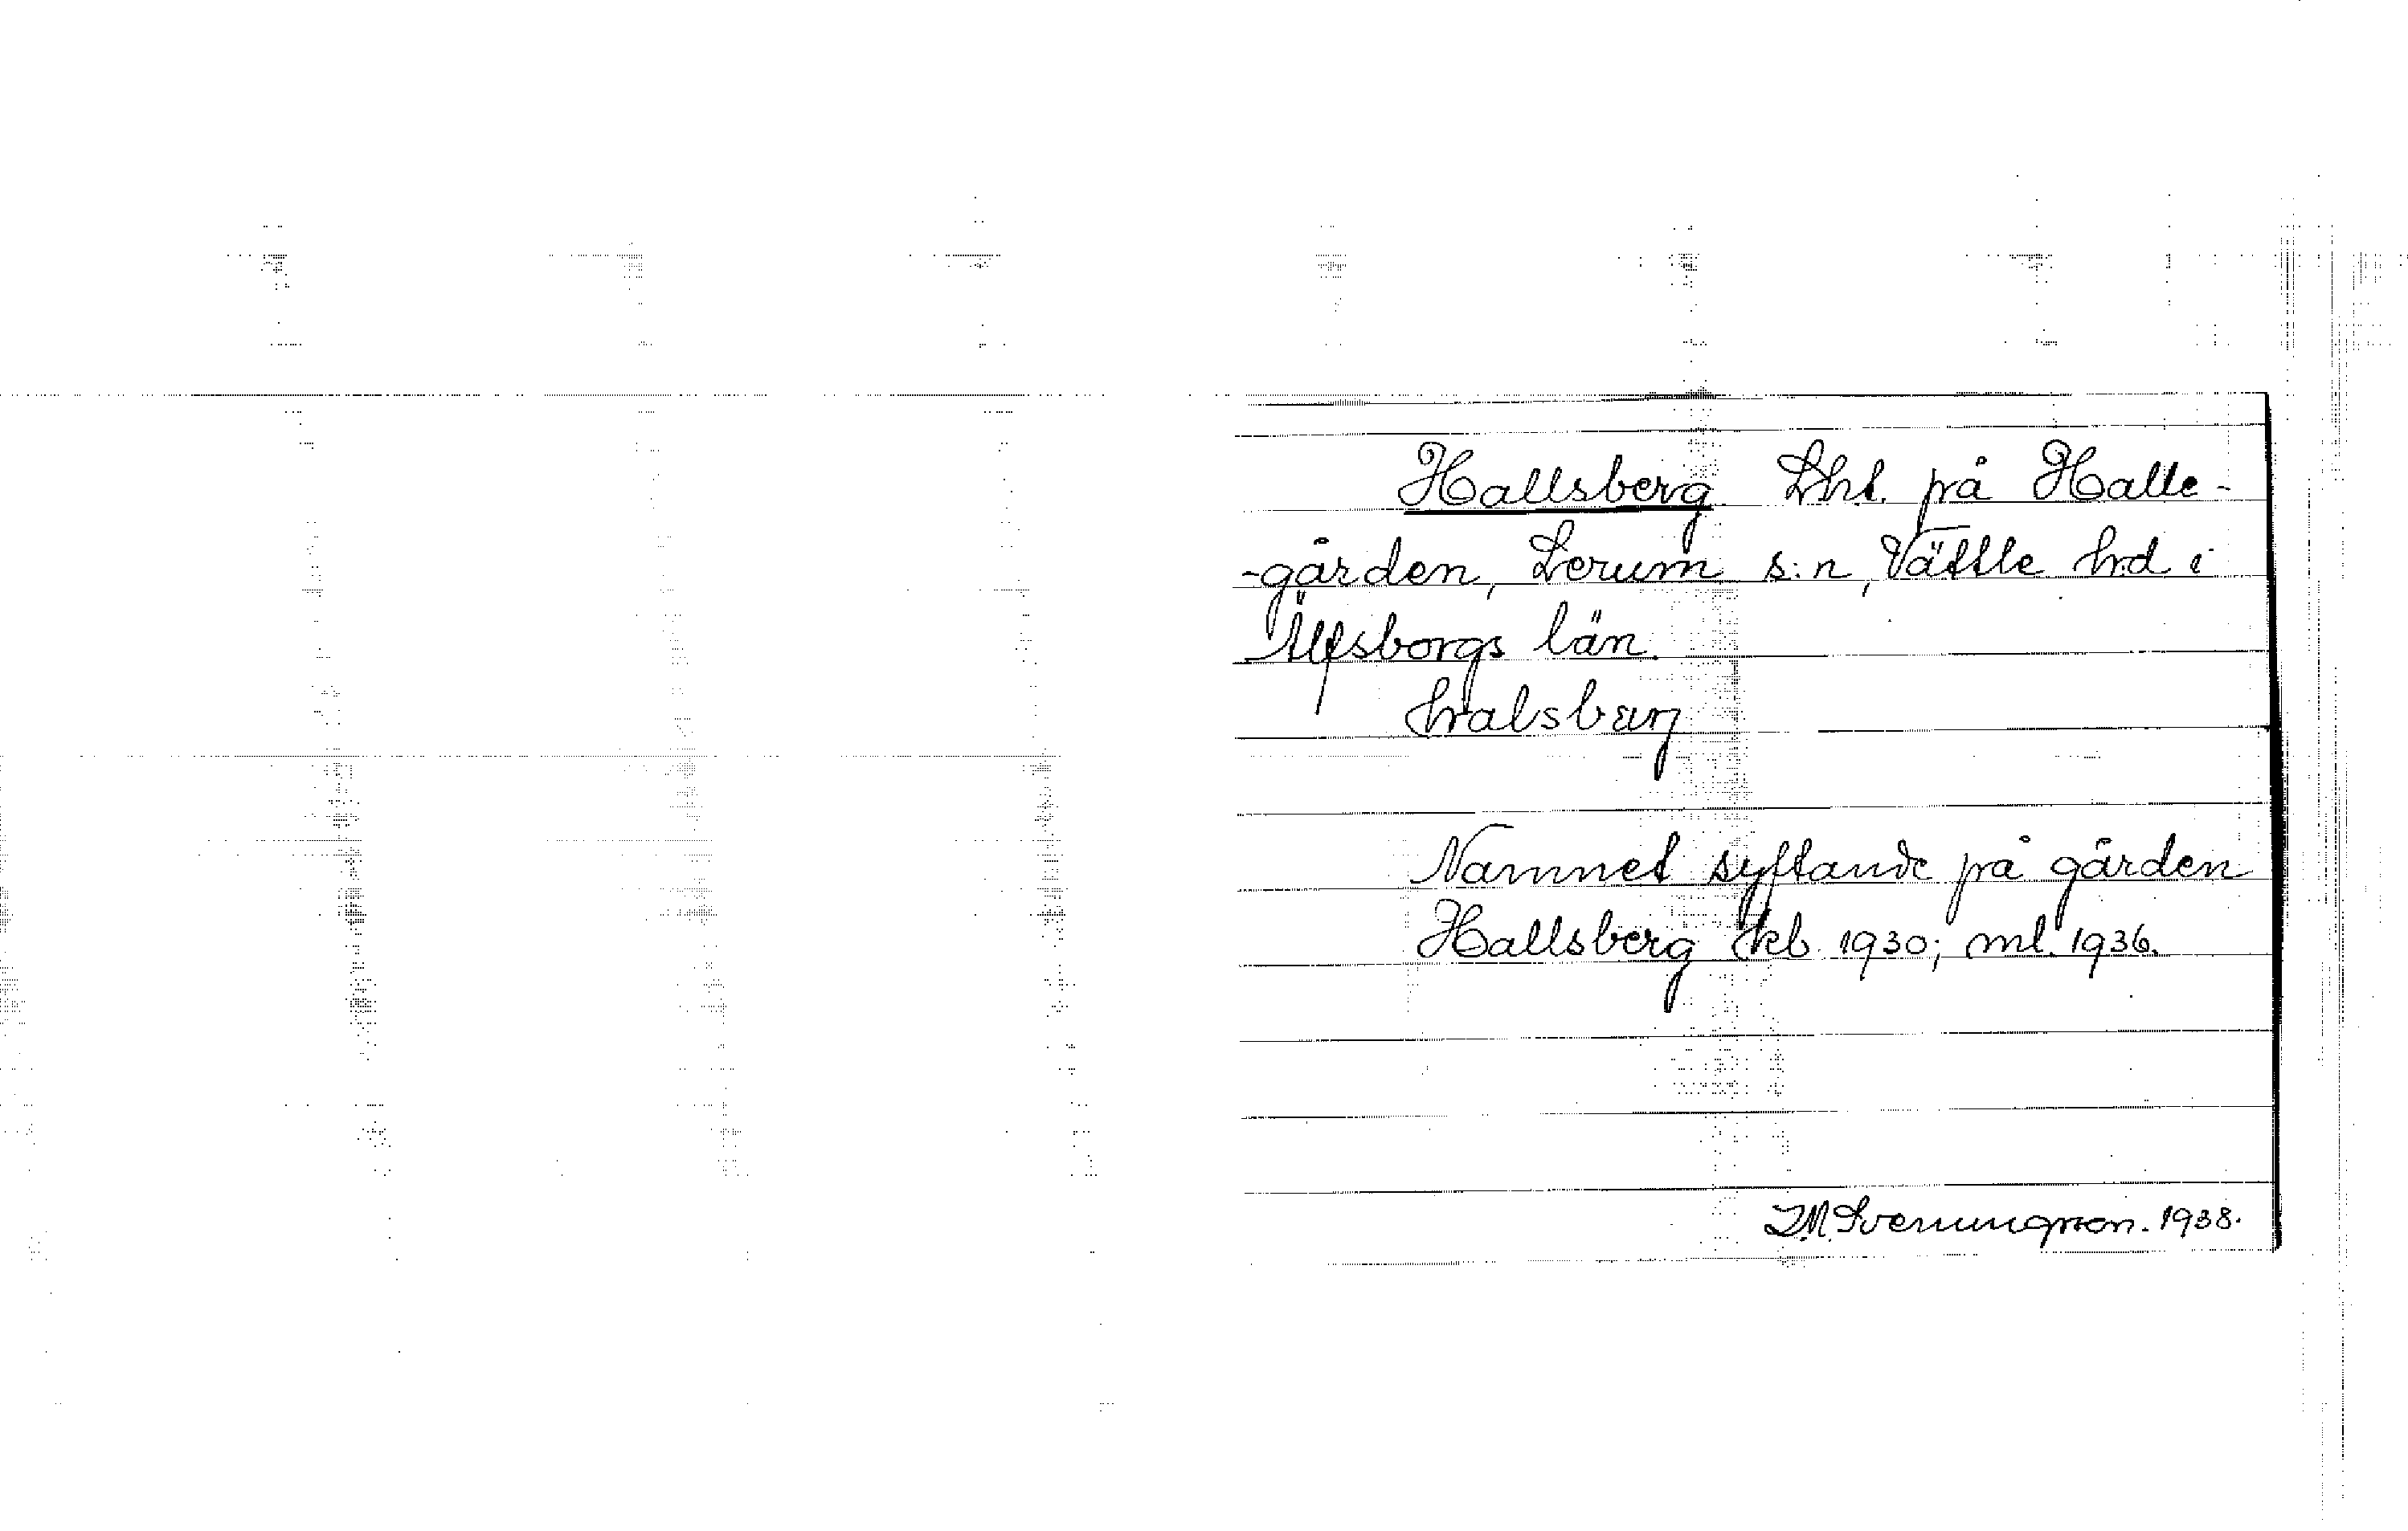 Hallsberg Lht. på Halle-
-gården, Lerum s:n, Vättle hd i
Älfsborgs län.
halsbærj
Namnet syftande på gården
Hallsberg kb 1930; ml. 1936.
I.M. Svenungsson. 1938.